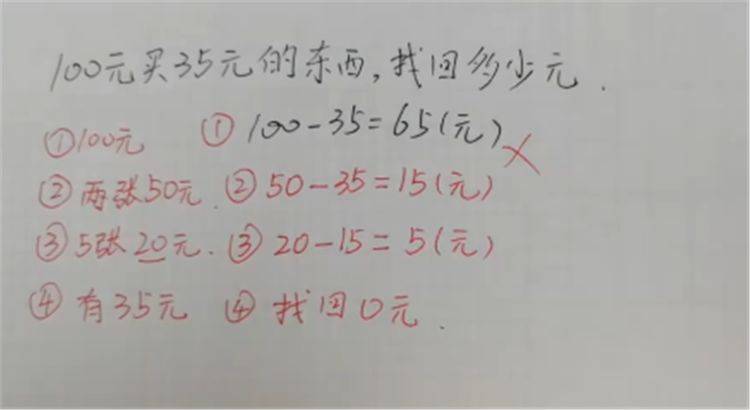 100元买35元的东西,找回多少元.
①100元 ① 100-35=65(元) ×
②两张50元. ② 50-35=15(元)
③5张20元. ③ 20-15=5(元)
④有35元 ④ 找回0元.